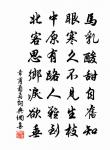 馬乳酸甜自舊知
眼寒久不見生枝
中原有路人難到
北客思鄉淚欲垂